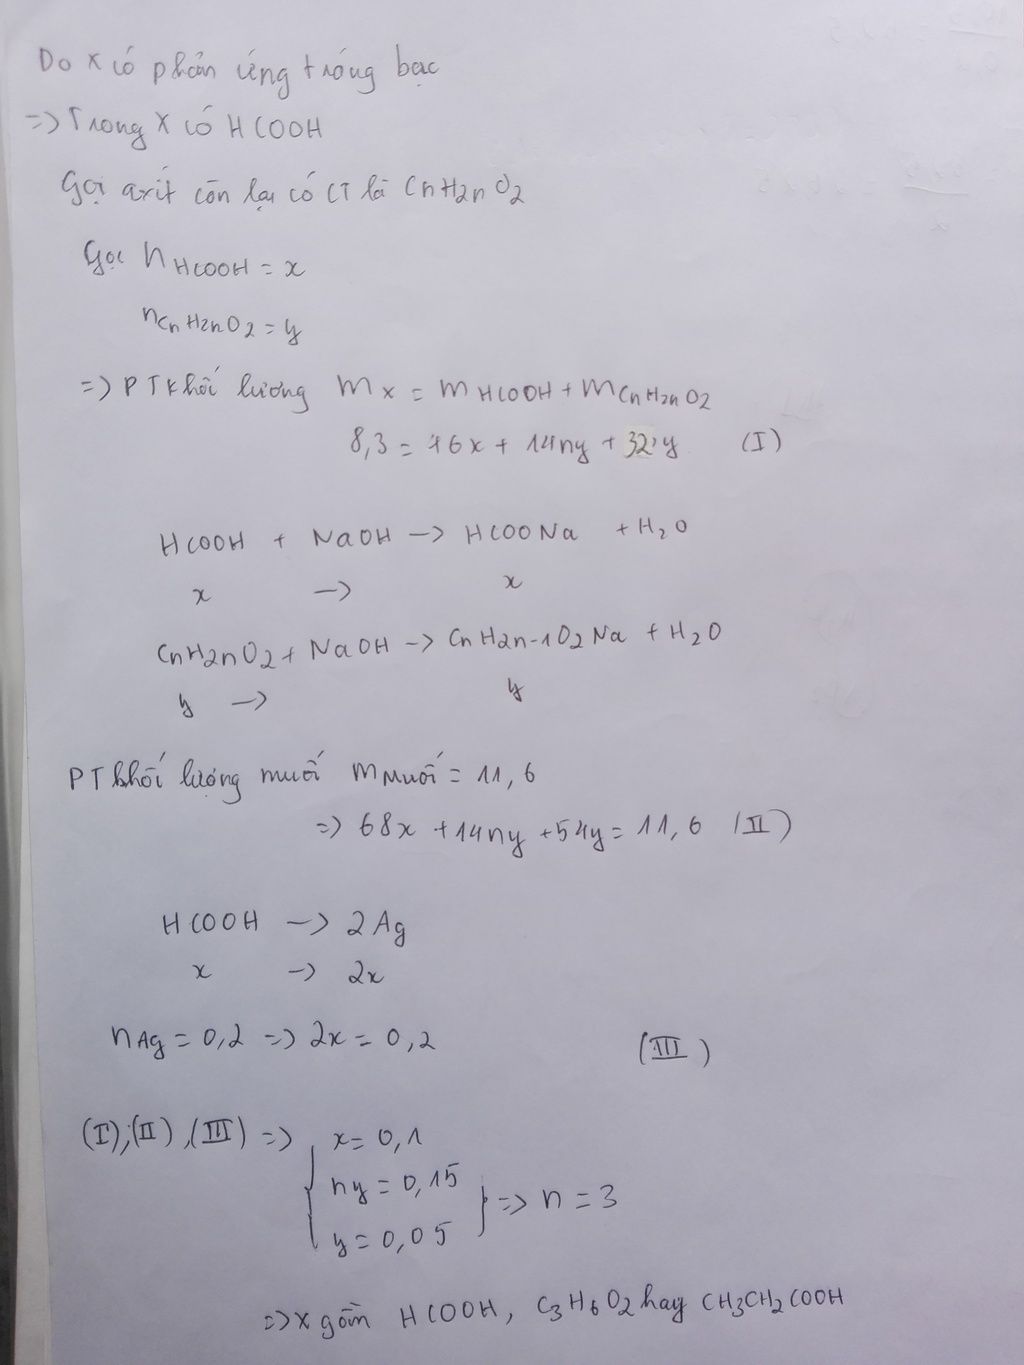 Do X có phản ứng tráng bạc
=> Trong X có HCOOH
Gọi axit còn lại có CT là CnH2nO2
Gọi nHCOOH = x
nCnH2nO2 = y
=> PT khối lượng mX = mHCOOH + mCnH2nO2
8,3 = 46x + 14ny + 32y (I)
HCOOH + NaOH -> HCOONa + H2O
x -> x
CnH2nO2 + NaOH -> CnH2n-1O2Na + H2O
y -> y
PT khối lượng muối mmuối = 11,6
=> 68x + 14ny + 54y = 11,6 (II)
HCOOH -> 2Ag
x -> 2x
nAg = 0,2 => 2x = 0,2 (III)
(I),(II),(III) => { x = 0,1
ny = 0,15
y = 0,05 } => n = 3
=> X gồm HCOOH, C3H6O2 hay CH3CH2COOH